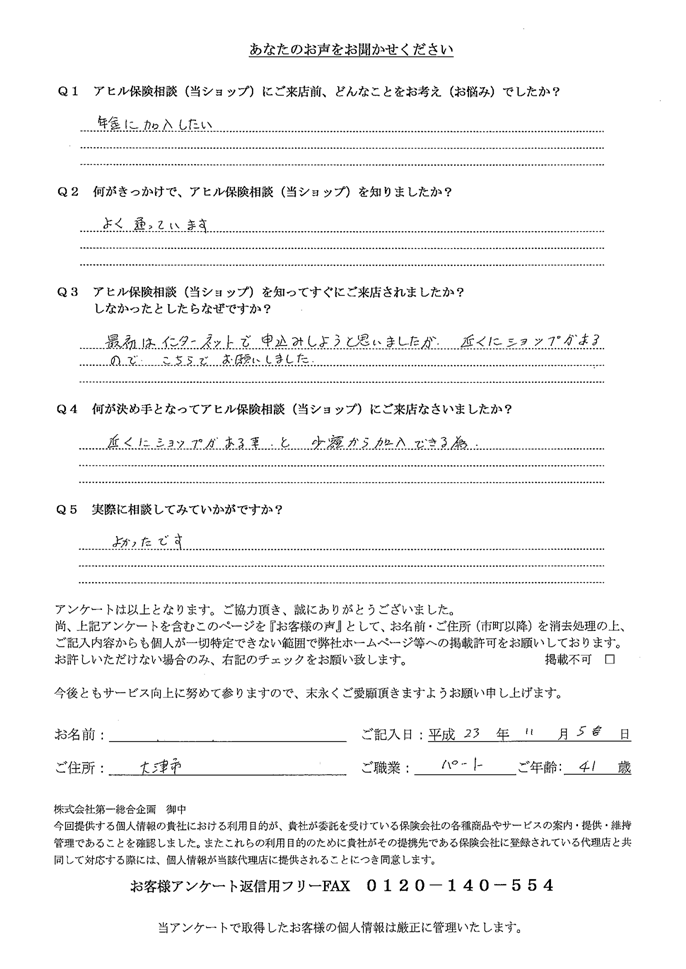 あなたのお声をお聞かせください
Q1 アヒル保険相談（当ショップ）にご来店前、どんなことをお考え（お悩み）でしたか？
年金に加入したい
Q2 何がきっかけで、アヒル保険相談（当ショップ）を知りましたか？
よく通っています
Q3 アヒル保険相談（当ショップ）を知ってすぐにご来店されましたか？
しなかったとしたらなぜですか？
最初はインターネットで申込みしようと思いましたが、近くにショップがある
ので、こちらでお願いしました.
Q4 何が決め手となってアヒル保険相談（当ショップ）にご来店なさいましたか？
近くにショップがある事.と 少額から加入できる為.
Q5 実際に相談してみていかがですか？
よかったです
アンケートは以上となります。ご協力頂き、誠にありがとうございました。
尚、上記アンケートを含むこのページを『お客様の声』として、お名前・ご住所（市町以降）を消去処理の上、
ご記入内容からも個人が一切特定できない範囲で弊社ホームページ等への掲載許可をお願いしております。
お許しいただけない場合のみ、右記のチェックをお願い致します。 掲載不可 □
今後ともサービス向上に努めて参りますので、末永くご愛願頂きますようお願い申し上げます。
お名前： ご記入日：平成 23 年 11 月 5 日
ご住所： 大津市 ご職業： パート ご年齢： 41 歳
株式会社第一総合企画 御中
今回提供する個人情報の貴社における利用目的が、貴社が委託を受けている保険会社の各種商品やサービスの案内・提供・維持
管理であることを確認しました。またこれらの利用目的のために貴社がその提携先である保険会社に登録されている代理店と共
同して対応する際には、個人情報が当該代理店に提供されることにつき同意します。
お客様アンケート返信用フリーFAX 0120－140－554
当アンケートで取得したお客様の個人情報は厳正に管理いたします。